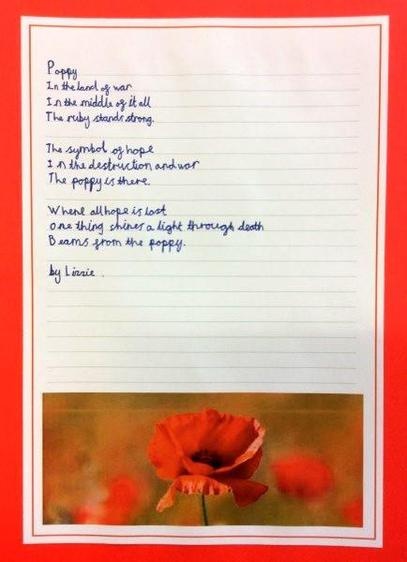 Poppy
In the land of war
In the middle of it all
The ruby stands strong.
The symbol of hope
In the destruction and war
The poppy is there.
Where all hope is lost
One thing shines a light through death
Beams from the poppy.
by Lizzie.